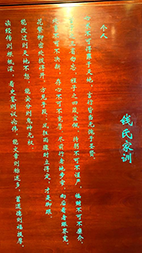 钱氏家训
个人
心术不可得罪于天地，言行皆当无愧于圣贤。
曾子之三省勿忘，程子之四箴宜佩。持躬不可不谨严，临财不可不廉介。
处事不可不决断，存心不可不宽厚。尽前行者地步窄，向后看者眼界宽。
花繁柳密处拨得开，方见手段。风狂雨骤时立得定，才是脚跟。
能改过则天地不怒，能安分则鬼神无权。
读经传则根柢深，看史鉴则议论伟。能文章则称述多，蓄道德则福报厚。